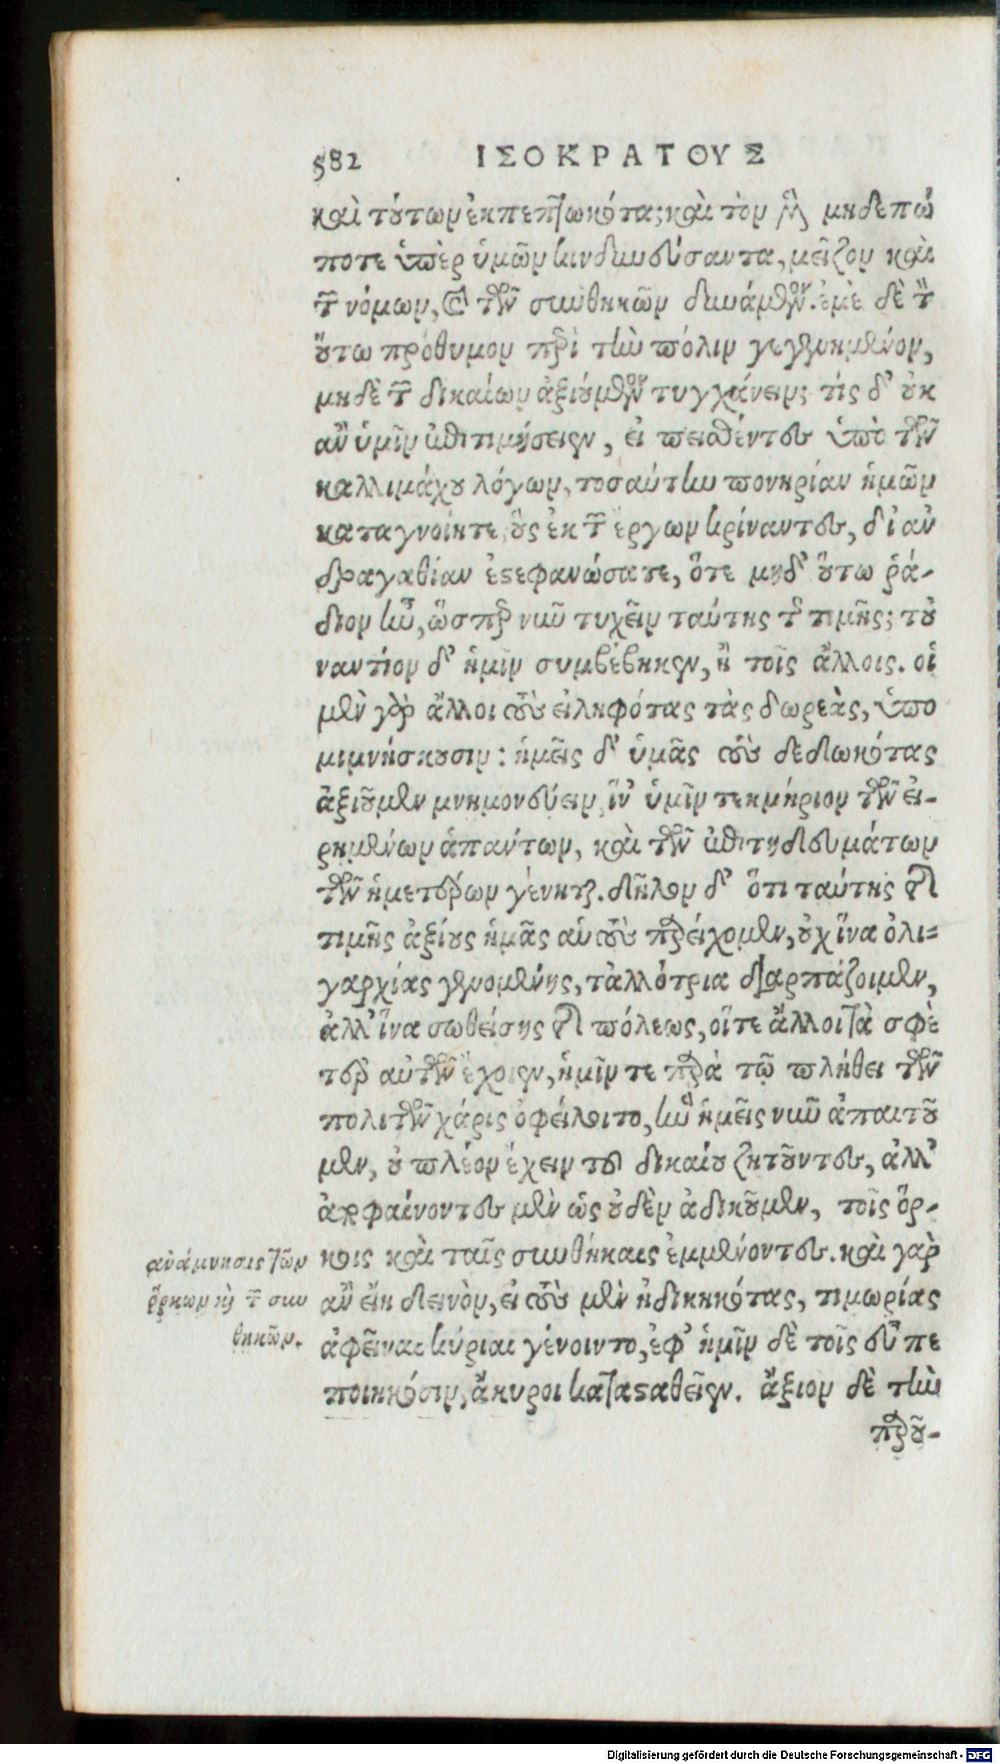 582 ΙΣΟΚΡΑΤΟΥΣ
καὶ τούτων ἐκπεπτωκότα; καὶ τὸν μὲν μηδεπώ
ποτε ὑπὲρ ὑμῶν κινδυνεύσαντα, μεῖζον καὶ
τῶν νόμων, καὶ τῶν συνθηκῶν δυνάμενον. ἐμὲ δὲ τὸν
οὕτω πρόθυμον περὶ τὴν πόλιν γεγενημένον,
μηδὲ τῶν δικαίων ἀξιούμενον τυγχάνειν; τίς δ' οὐκ
ἂν ὑμῖν ἐπιτιμήσειεν, εἰ πεισθέντες ὑπὸ τῶν
καλλιμάχου λόγων, τοσαύτην πονηρίαν ἡμῶν
καταγνοίητε, οὓς ἐκ τῶν ἔργων κρίναντες, δι' ἀν
δραγαθίαν ἐστεφανώσατε, ὅτε μηδ' οὕτω ῥά-
διον ἦν, ὥσπερ νῦν τυχεῖν ταύτης τῆς τιμῆς; τοὐ
ναντίον δ' ἡμῖν συμβέβηκεν, ἢ τοῖς ἄλλοις. οἱ
μὲν γὰρ ἄλλοι τοὺς εἰληφότας τὰς δωρεὰς, ὑπο
μιμνήσκουσιν: ἡμεῖς δ' ὑμᾶς τοὺς δεδωκότας
ἀξιοῦμεν μνημονεύειν, ἵν' ὑμῖν τεκμήριον τῶν εἰ-
ρημένων ἁπάντων, καὶ τῶν ἐπιτηδευμάτων
τῶν ἡμετέρων γένηται. δῆλον δ' ὅτι ταύτης τῆς
τιμῆς ἀξίους ἡμᾶς αὐτοὺς παρείχομεν, οὐχ ἵνα ὀλι-
γαρχίας γενομένης, τἀλλότρια διαρπάζοιμεν,
ἀλλ' ἵνα σωθείσης τῆς πόλεως, οἵτε ἄλλοι τὰ σφέ
τερ' αὐτῶν ἔχοιεν, ἡμῖν τε παρὰ τῷ πλήθει τῶν
πολιτῶν χάρις ὀφείλοιτο, ἣν ἡμεῖς νῦν ἀπαιτοῦ
μεν, οὐ πλέον ἔχειν τοῦ δικαίου ζητοῦντες, ἀλλ'
ἀποφαίνοντες μὲν ὡς οὐδὲν ἀδικοῦμεν, τοῖς ὅρ-
κοις καὶ ταῖς συνθήκαις ἐμμένοντες. καὶ γὰρ
ἂν εἴη δεινὸν, εἰ τοὺς μὲν ἠδικηκότας, τιμωρίας
ἀφεῖναι κύριαι γένοιντο, ἐφ' ἡμῖν δὲ τοῖς εὖ πε
ποιηκόσιν, ἄκυροι κατασταθεῖεν. ἄξιον δὲ τὴν
παροῦ-
ἀνάμνησις τῶν
ὅρκων καὶ τῶν συν
θηκῶν.
Digitalisierung gefördert durch die Deutsche Forschungsgemeinschaft - DFG